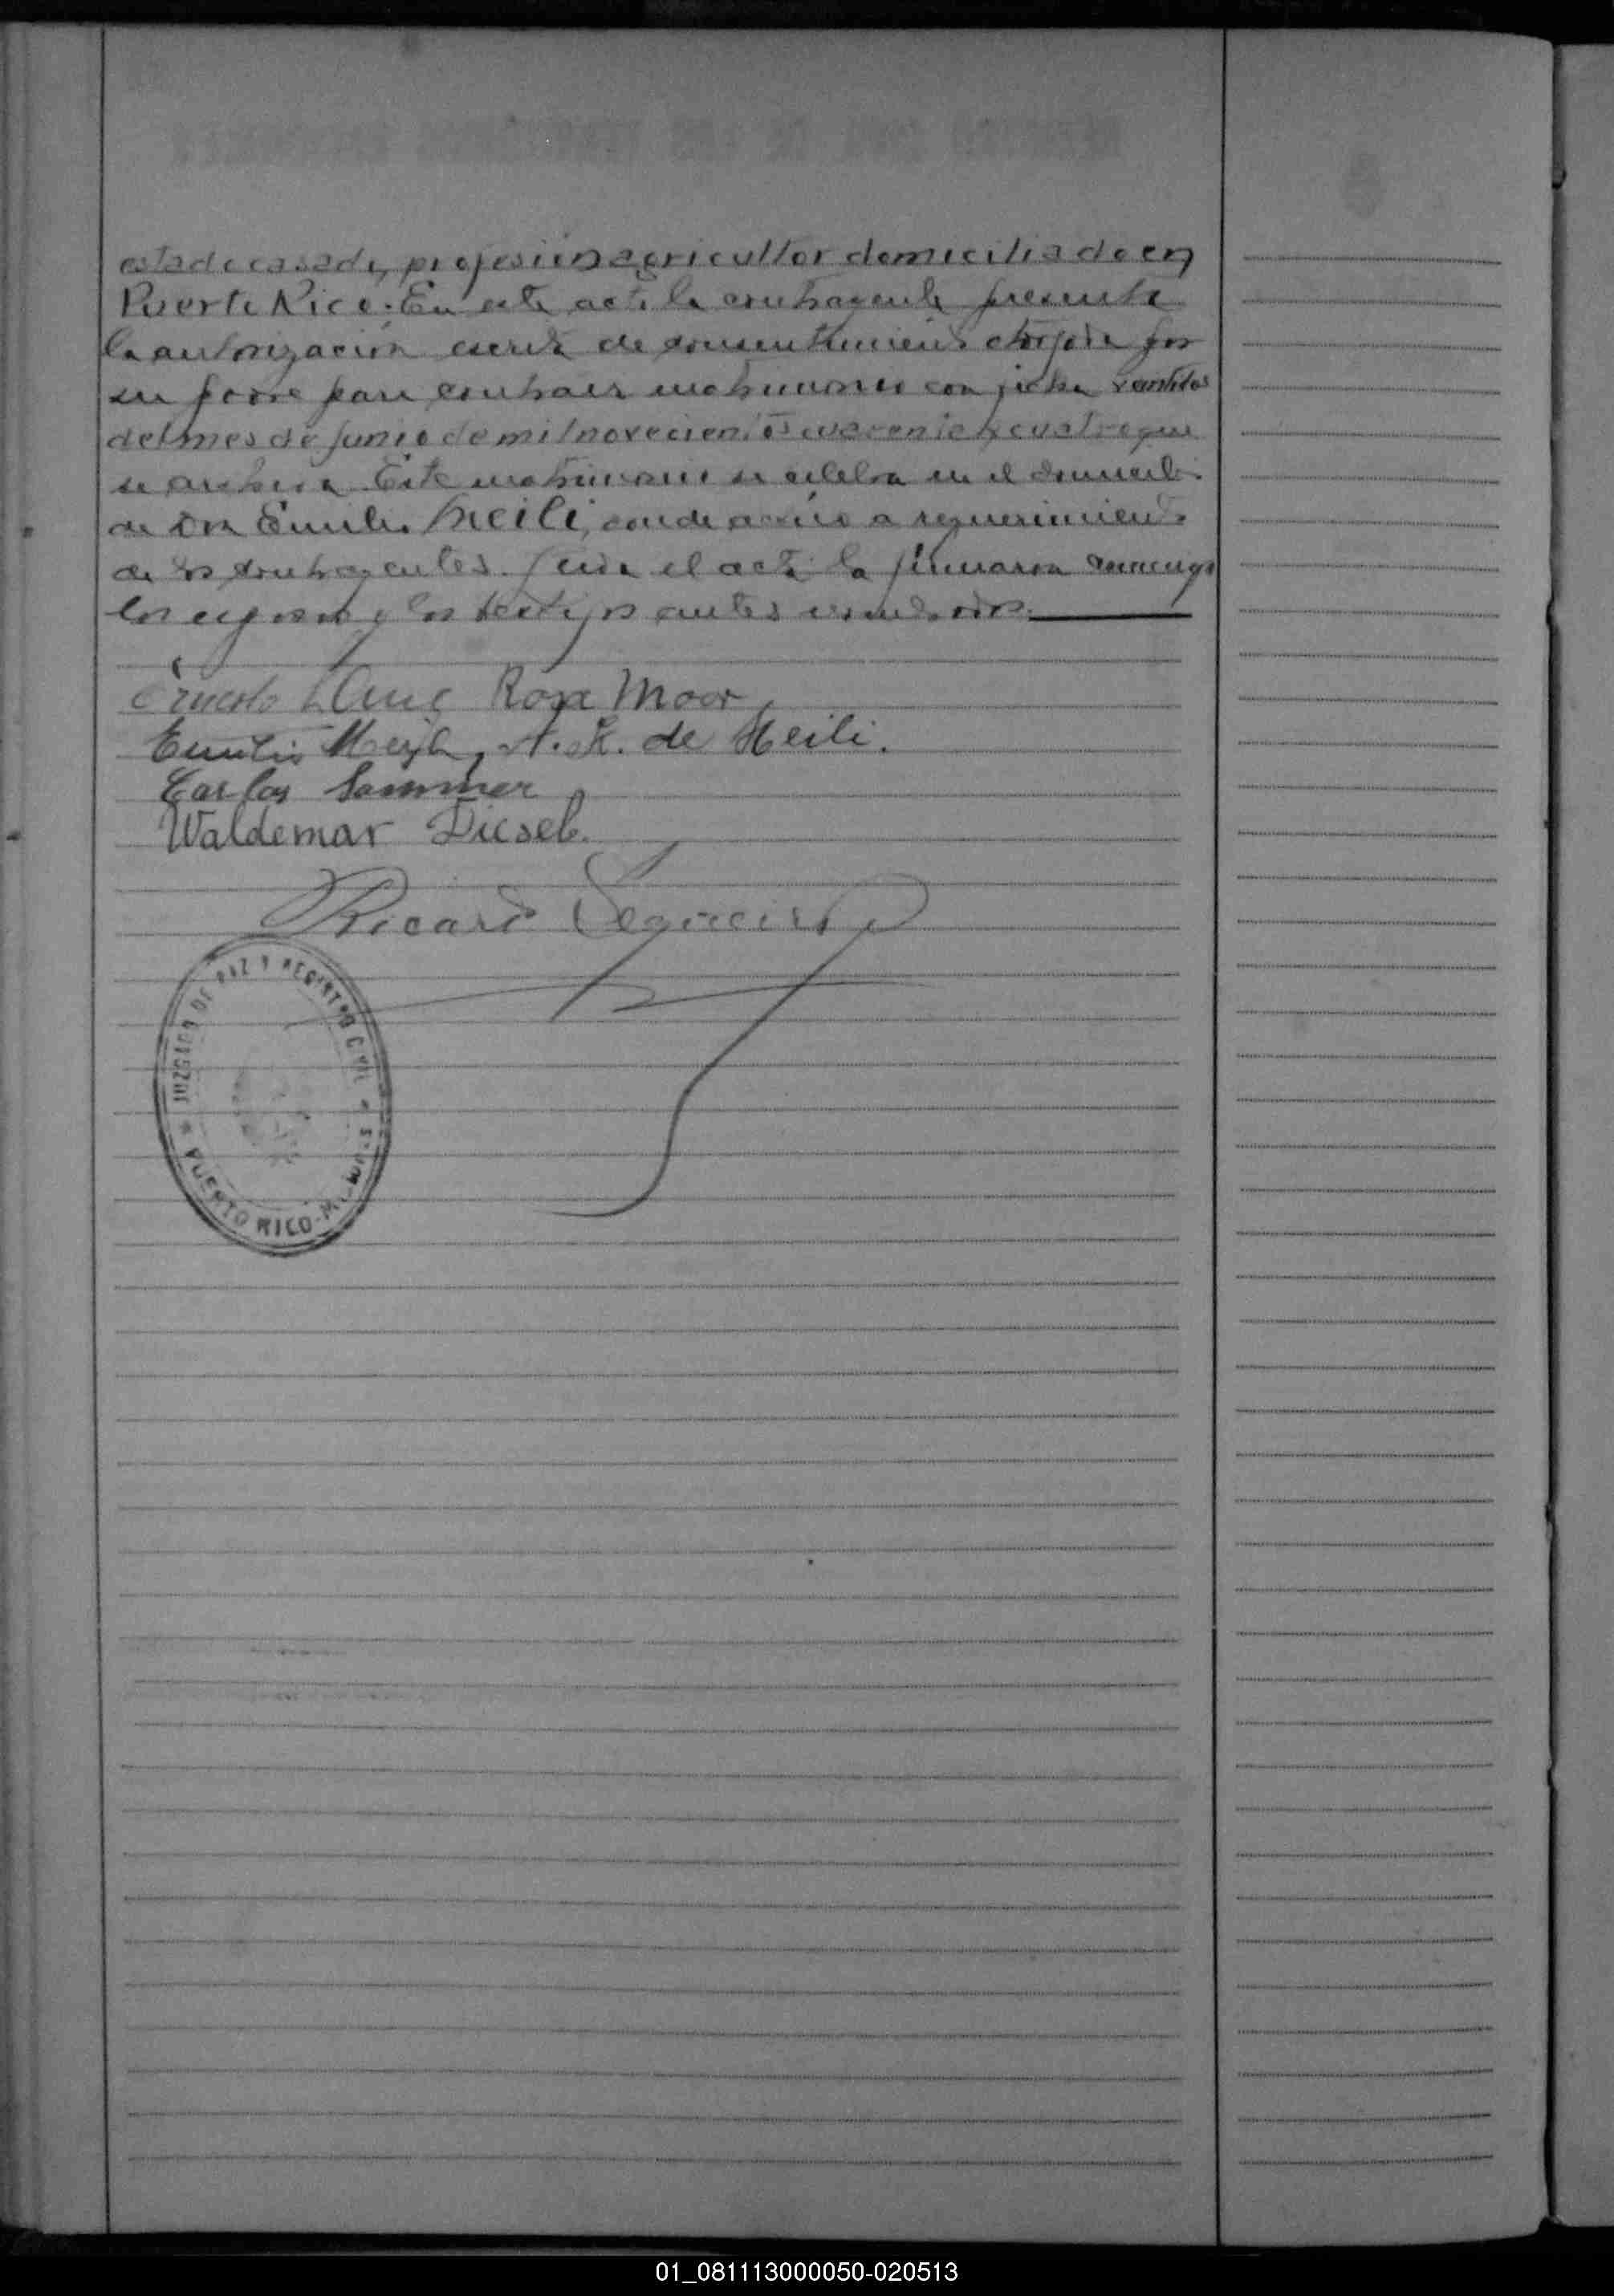 estado casado, profesión agricultor domiciliado en
Puerto Rico. En este acto la contrayente presenta
la autorización escrita de consentimiento otorgada por
su padre para contraer matrimonio con fecha veintidos
del mes de junio de mil novecientos cuarenta y cuatro que
se archiva. Este matrimonio se celebra en el domicilio
de Don Emilio Meili, donde acudo a requerimiento
de los contrayentes. Leida el acta la firmaron conmigo
los esposos y los testigos antes nombrados.
Ernesto Rosa Moor
Emilio A. K. de Meili.
Carlos Sommer
Waldemar Diesel.
Ricardo
JUZGADO DE PAZ Y REGISTRO CIVIL
PUERTO RICO-MISIONES
01_081113000050-020513